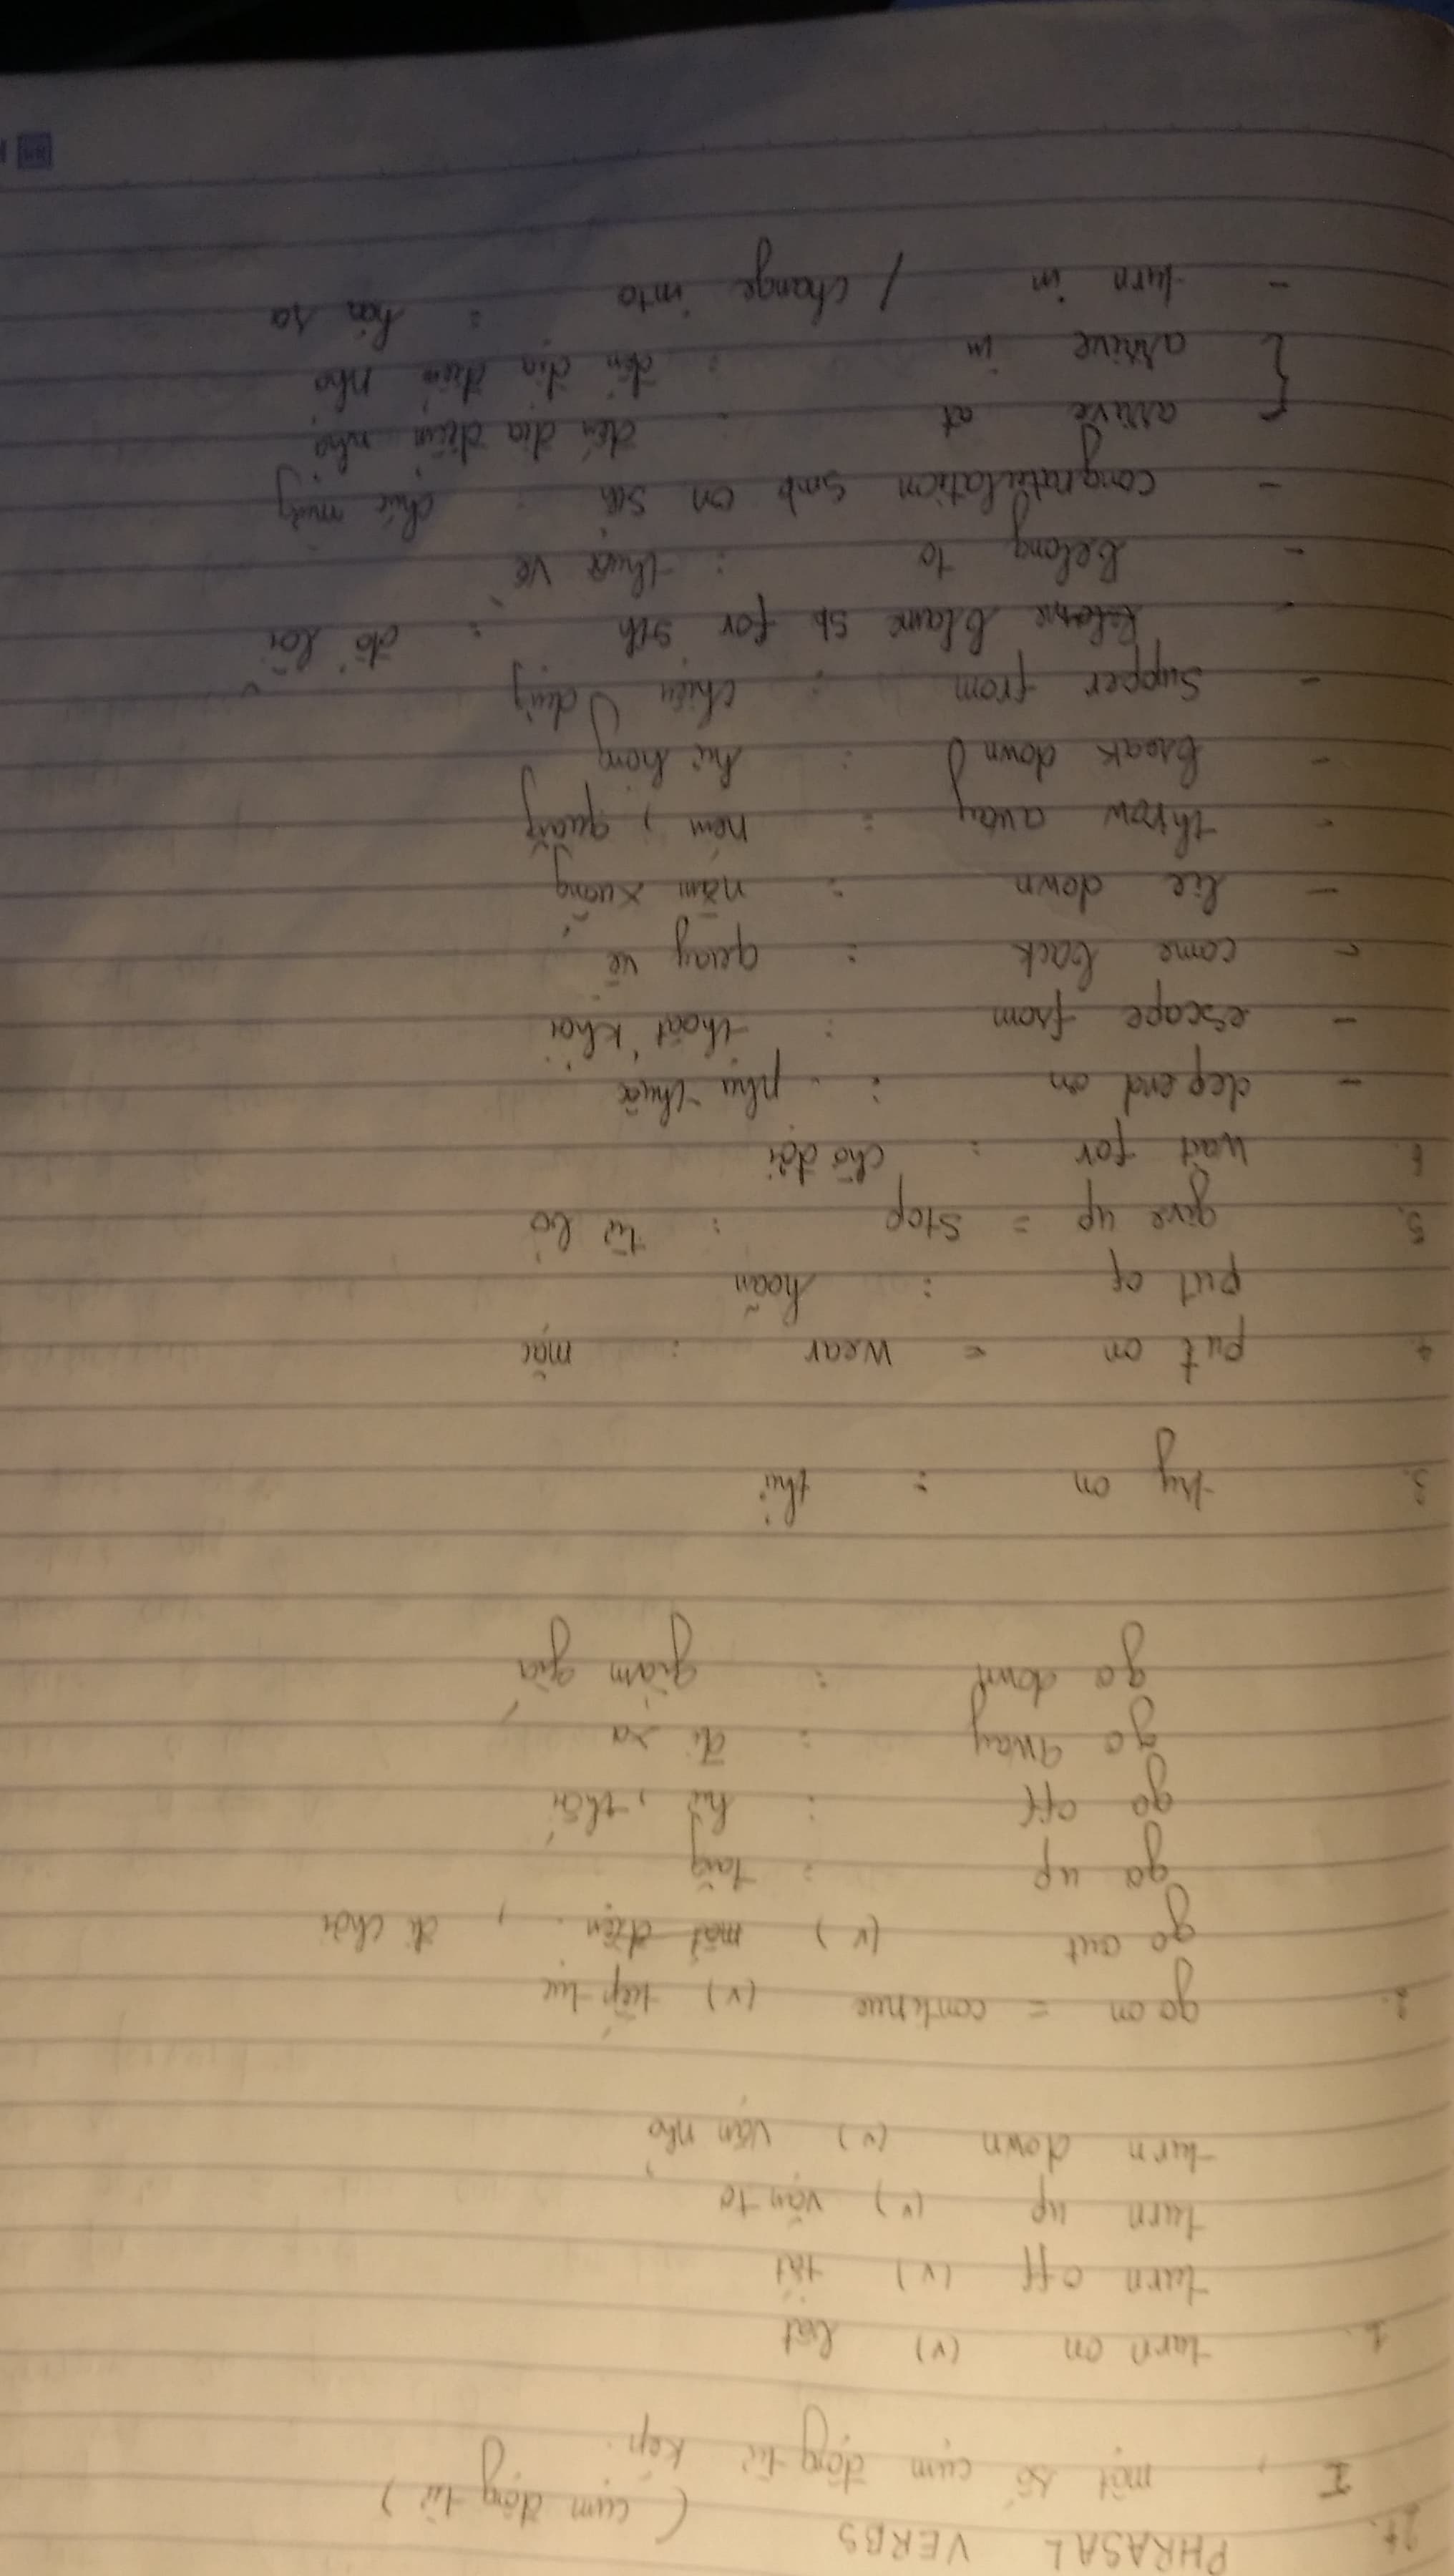 24. PHRASAL VERBS (cụm động từ)
I, một số cụm động từ kép.
1. turn on (v) bật
turn off (v) tắt
turn up (v) vặn to
turn down (v) vặn nhỏ
2. go on = continue (v) tiếp tục
go out (v) mất điện, đi chơi
go up : tăng
go off : hư, thối
go away : đi xa
go down : giảm giá
3. try on : thử
4. put on = wear : mặc
put of : hoãn
5. give up = stop : từ bỏ
6. wait for : chờ đợi
- depend on : phụ thuộc
- escape from : thoát khỏi
- come back : quay về
- lie down : nằm xuống
- throw away : ném, quăng
- break down : hư hỏng
- supper from : chịu đựng
- blame sb for sth : đổ lỗi
- belong to : thuộc về
- congratulation smb on sth : chúc mừng
arrive at : đến địa điểm nhỏ
arrive in : đến địa điểm nhỏ
- turn in / change into : hóa ra